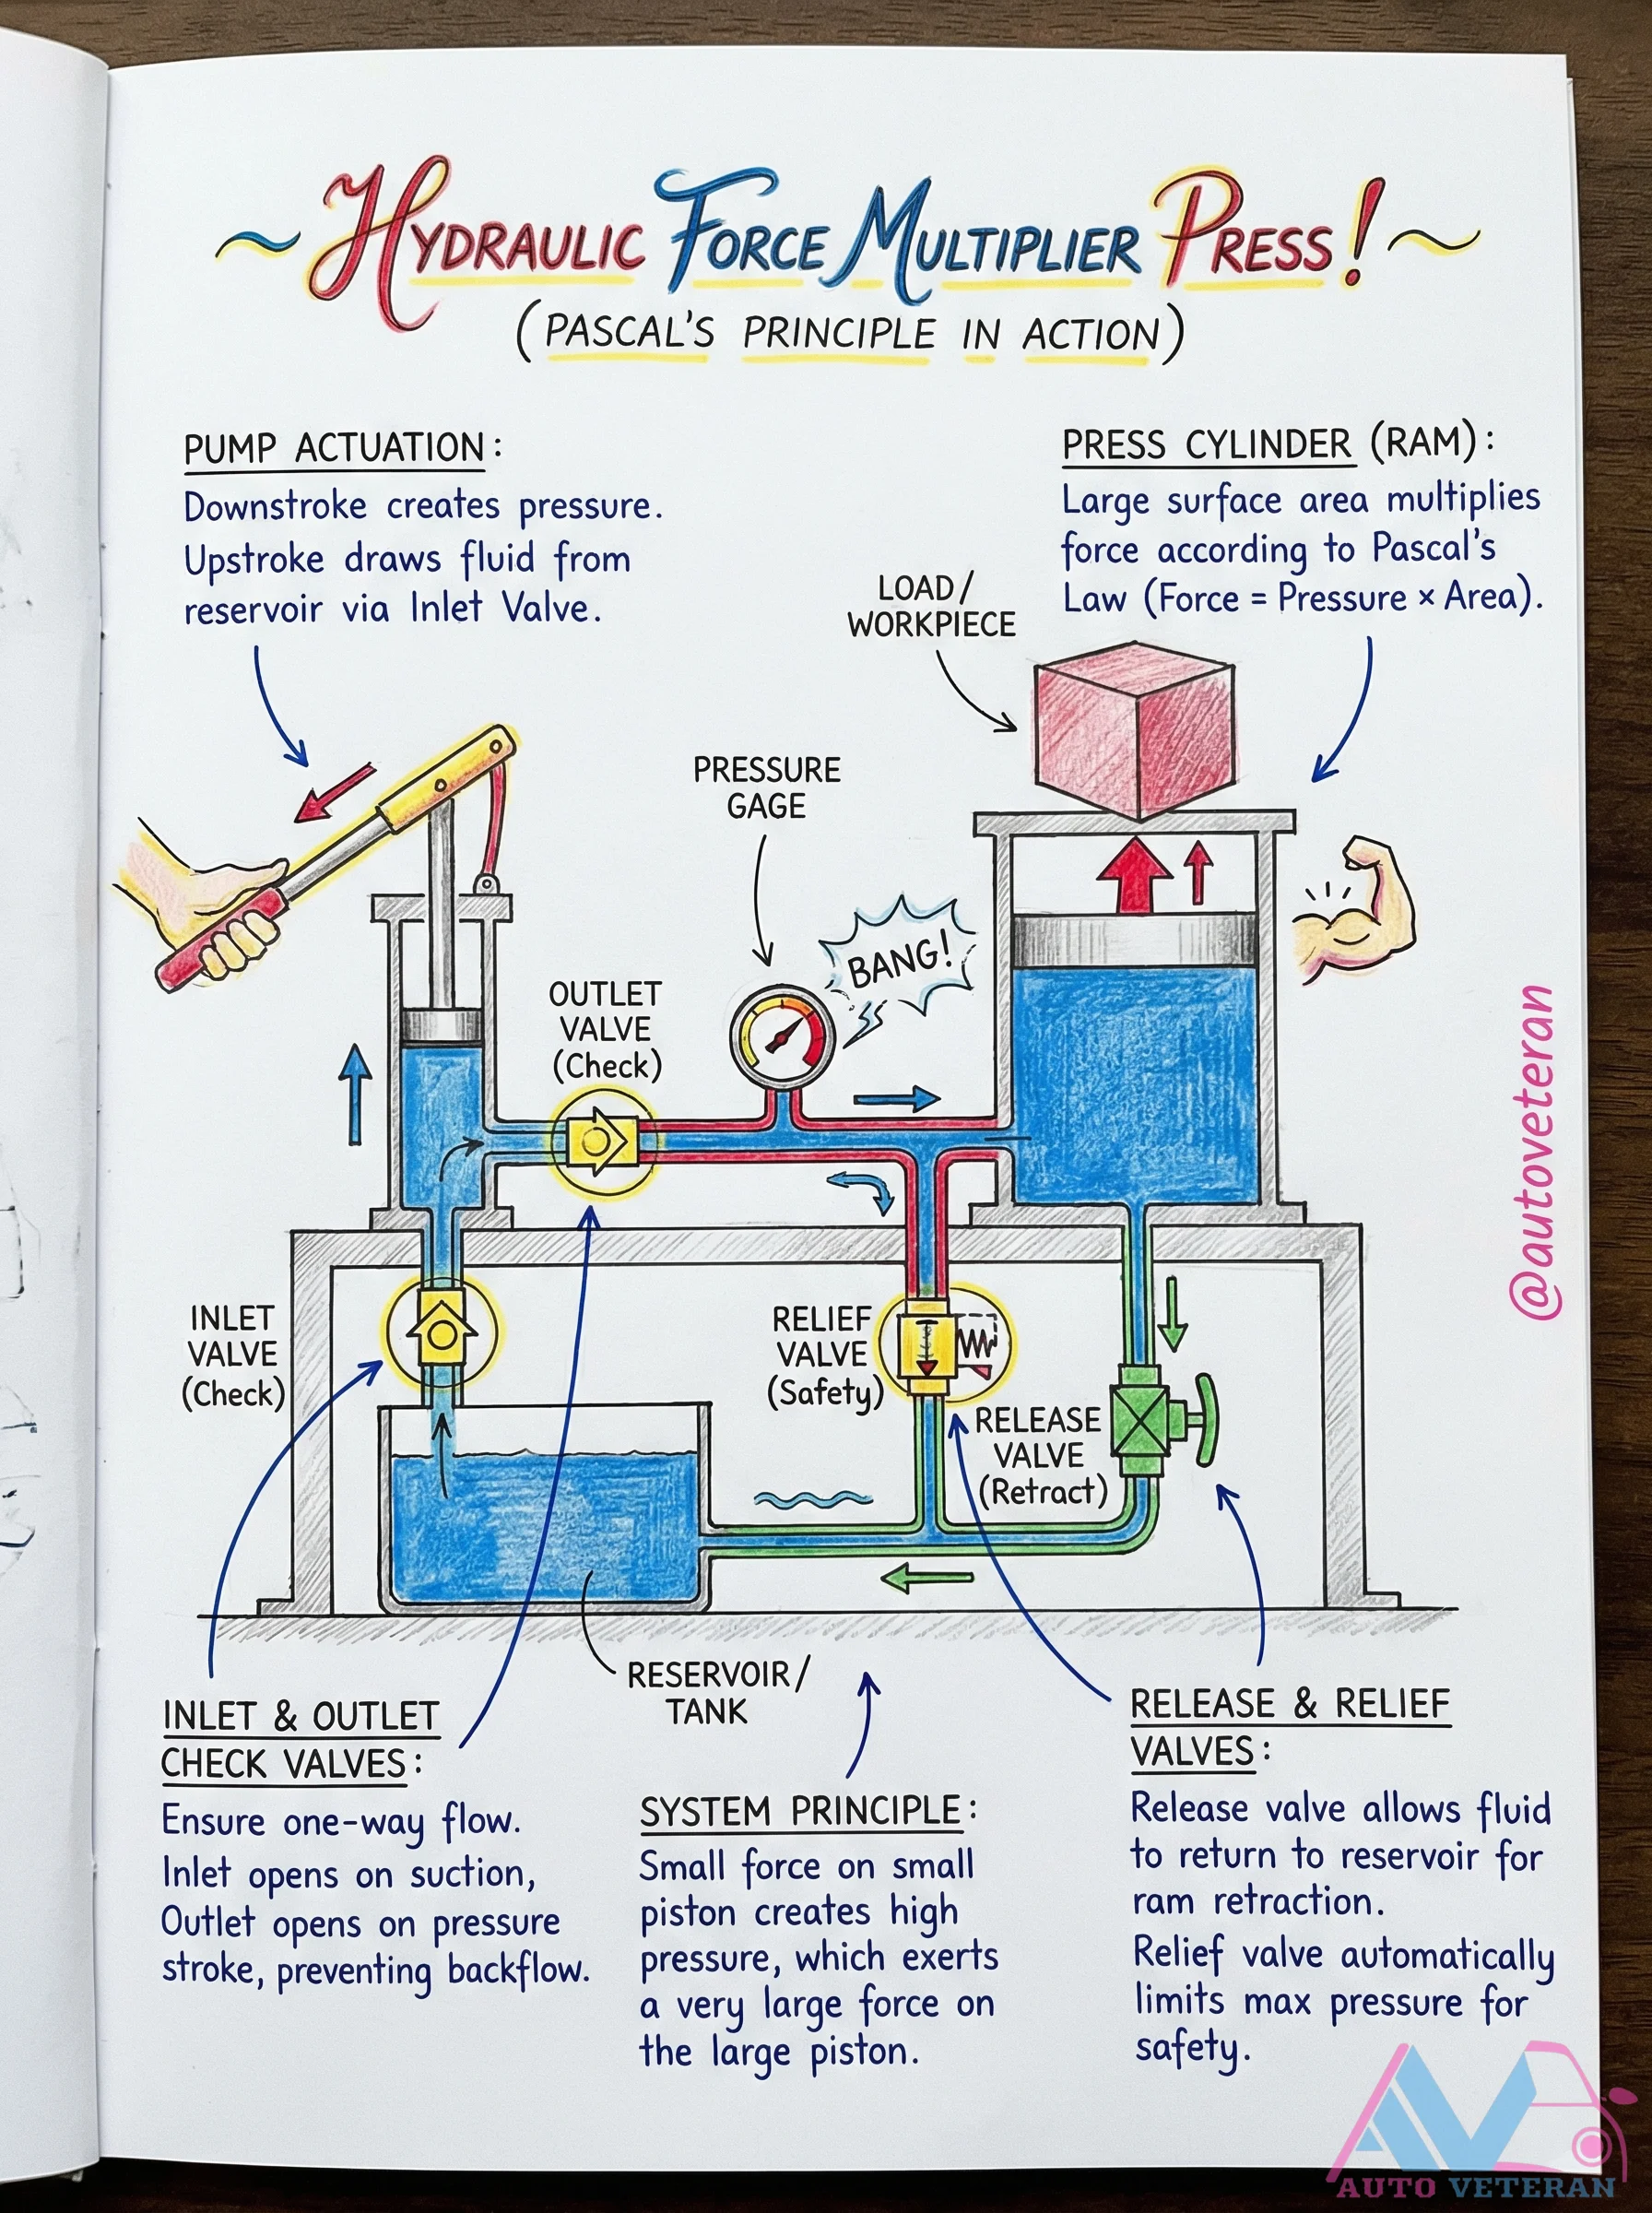 ~ HYDRAULIC FORCE MULTIPLIER PRESS! ~
(PASCAL'S PRINCIPLE IN ACTION)
PUMP ACTUATION:
Downstroke creates pressure.
Upstroke draws fluid from
reservoir via Inlet Valve.
PRESS CYLINDER (RAM):
Large surface area multiplies
force according to Pascal's
Law (Force = Pressure × Area).
LOAD/
WORKPIECE
PRESSURE
GAGE
BANG!
OUTLET
VALVE
(Check)
INLET
VALVE
(Check)
RELIEF
VALVE
(Safety)
RELEASE
VALVE
(Retract)
RESERVOIR/
TANK
INLET & OUTLET
CHECK VALVES:
Ensure one-way flow.
Inlet opens on suction,
Outlet opens on pressure
stroke, preventing backflow.
SYSTEM PRINCIPLE:
Small force on small
piston creates high
pressure, which exerts
a very large force on
the large piston.
RELEASE & RELIEF
VALVES:
Release valve allows fluid
to return to reservoir for
ram retraction.
Relief valve automatically
limits max pressure for
safety.
@autoveteran
AV
AUTO VETERAN